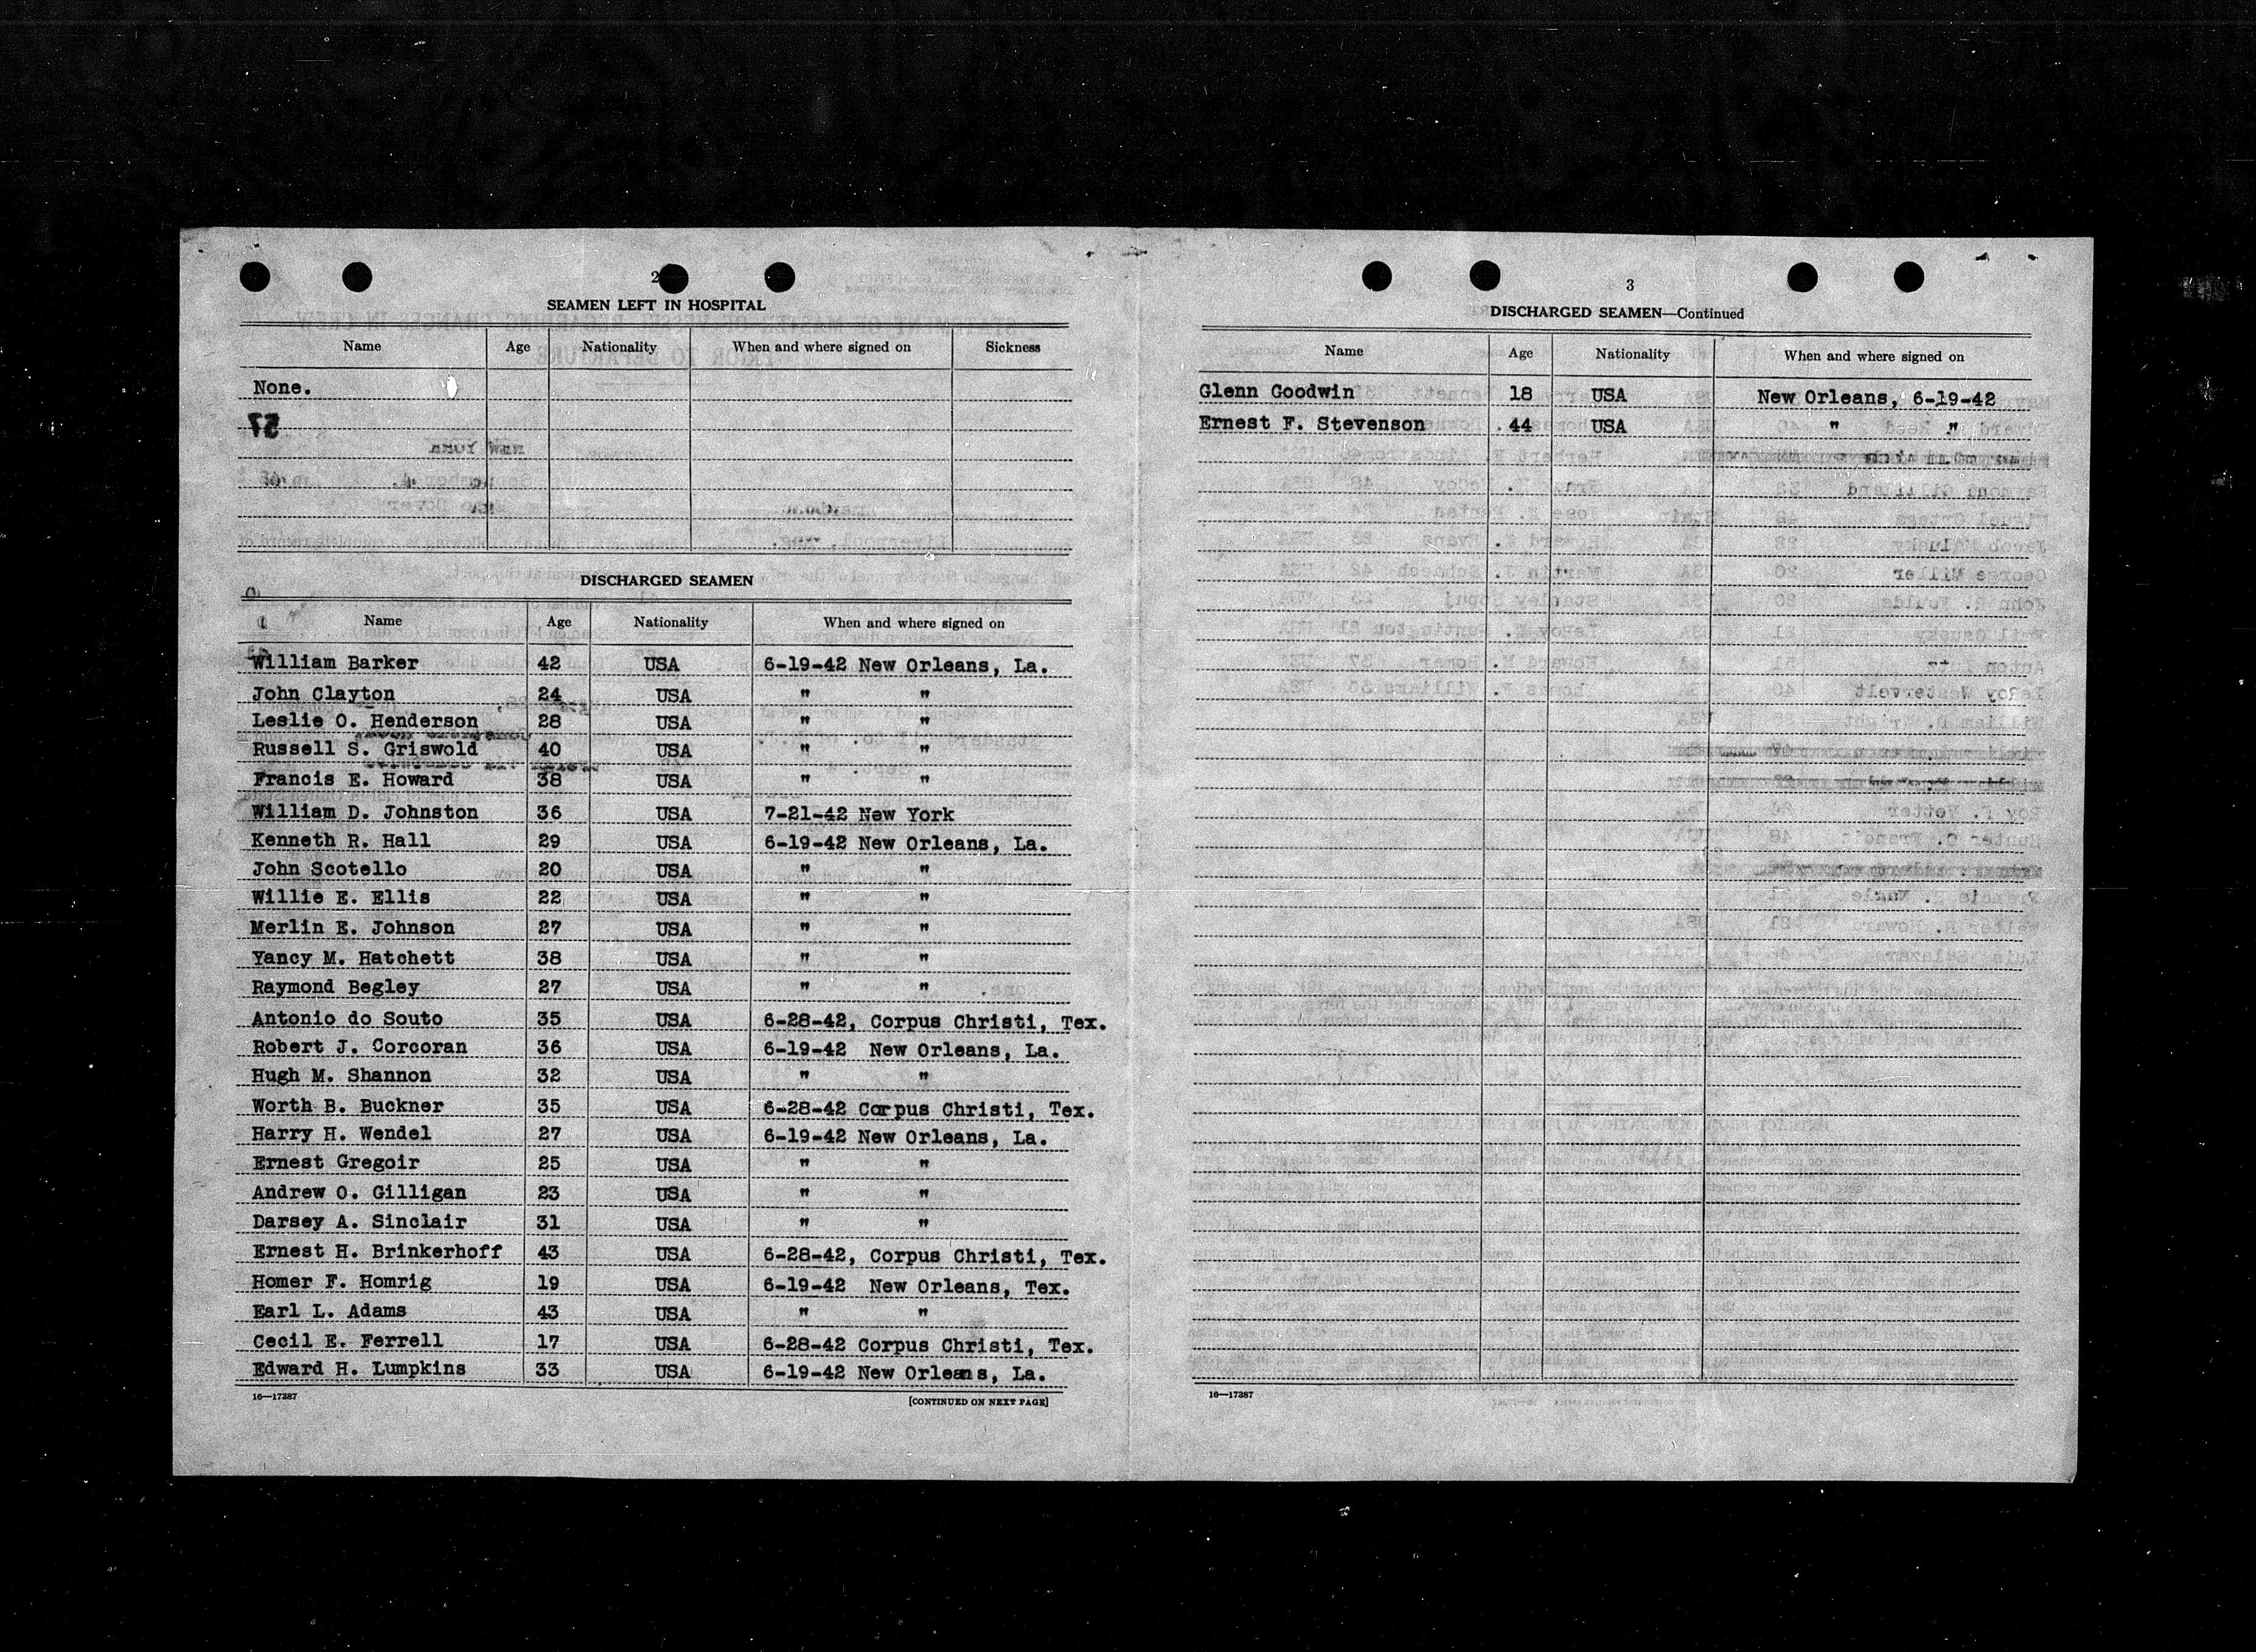 2
SEAMEN LEFT IN HOSPITAL
Name Age Nationality When and where signed on Sickness
None.
DISCHARGED SEAMEN
Name Age Nationality When and where signed on
William Barker 42 USA 6-19-42 New Orleans, La.
John Clayton 24 USA " "
Leslie O. Henderson 28 USA " "
Russell S. Griswold 40 USA " "
Francis E. Howard 38 USA " "
William D. Johnston 36 USA 7-21-42 New York
Kenneth R. Hall 29 USA 6-19-42 New Orleans, La.
John Scotello 20 USA " "
Willie E. Ellis 22 USA " "
Merlin E. Johnson 27 USA " "
Yancy M. Hatchett 38 USA " "
Raymond Begley 27 USA " "
Antonio do Souto 35 USA 6-28-42, Corpus Christi, Tex.
Robert J. Corcoran 36 USA 6-19-42 New Orleans, La.
Hugh M. Shannon 32 USA " "
Worth B. Buckner 35 USA 6-28-42 Corpus Christi, Tex.
Harry H. Wendel 27 USA 6-19-42 New Orleans, La.
Ernest Gregoir 25 USA " "
Andrew O. Gilligan 23 USA " "
Darsey A. Sinclair 31 USA " "
Ernest H. Brinkerhoff 43 USA 6-28-42, Corpus Christi, Tex.
Homer F. Homrig 19 USA 6-19-42 New Orleans, Tex.
Earl L. Adams 43 USA " "
Cecil E. Ferrell 17 USA 6-28-42 Corpus Christi, Tex.
Edward H. Lumpkins 33 USA 6-19-42 New Orleans, La.
16—17387
[CONTINUED ON NEXT PAGE]
3
DISCHARGED SEAMEN—Continued
Name Age Nationality When and where signed on
Glenn Goodwin 18 USA New Orleans, 6-19-42
Ernest F. Stevenson 44 USA " "
16—17387